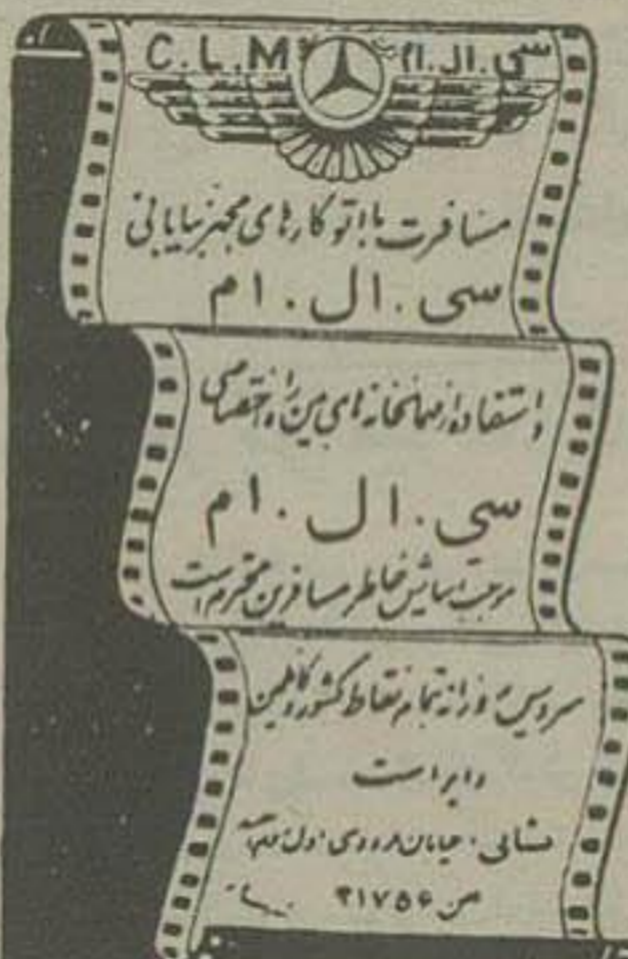 C.L.M سی.ال.ام
مسافرت با اتوکارهای مجهز بیابانی
سی.ال.ام
و استفاده از مهمانخانه‌های بین راه اختصاصی
سی.ال.ام
موجب آسایش خاطر مسافرین محترم است
سرویس روزانه بتمام نقاط کشور و کاظمین
دایر است
نشانی: خیابان فردوسی
۳۱۷۵۶